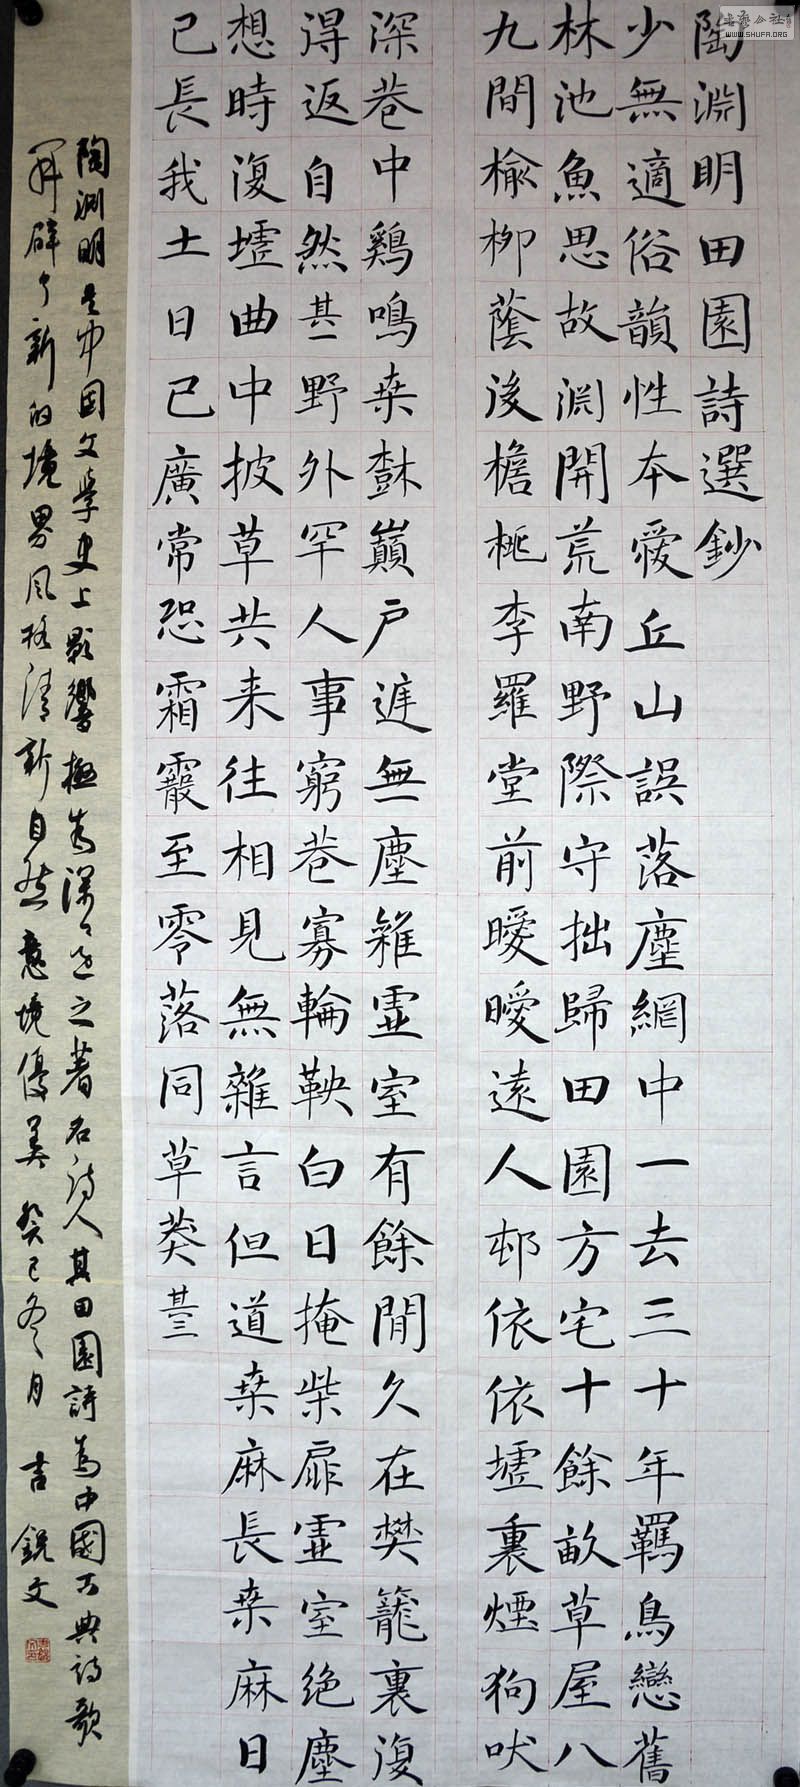 陶淵明田園詩選鈔
少無適俗韻性本愛丘山誤落塵網中一去三十年羈鳥戀舊
林池魚思故淵開荒南野際守拙歸田園方宅十餘畝草屋八
九間榆柳蔭後檐桃李羅堂前曖曖遠人邨依依墟裏煙狗吠
深巷中鷄鳴桒樹巔戶庭無塵雜虛室有餘閒久在樊籠裏復
得返自然其一野外罕人事窮巷寡輪鞅白日掩柴扉虛室絕塵
想時復墟曲中披草共来往相見無雜言但道桒麻長桒麻日
已長我土日已廣常恐霜霰至零落同草莽其三
陶渊明是中国文学史上影響極為深遠之著名詩人其田園詩為中國古典詩歌
開辟了新的境界風格清新自然意境優美 癸巳冬月 吉銳文
書藝公社
WWW.SHUFA.ORG